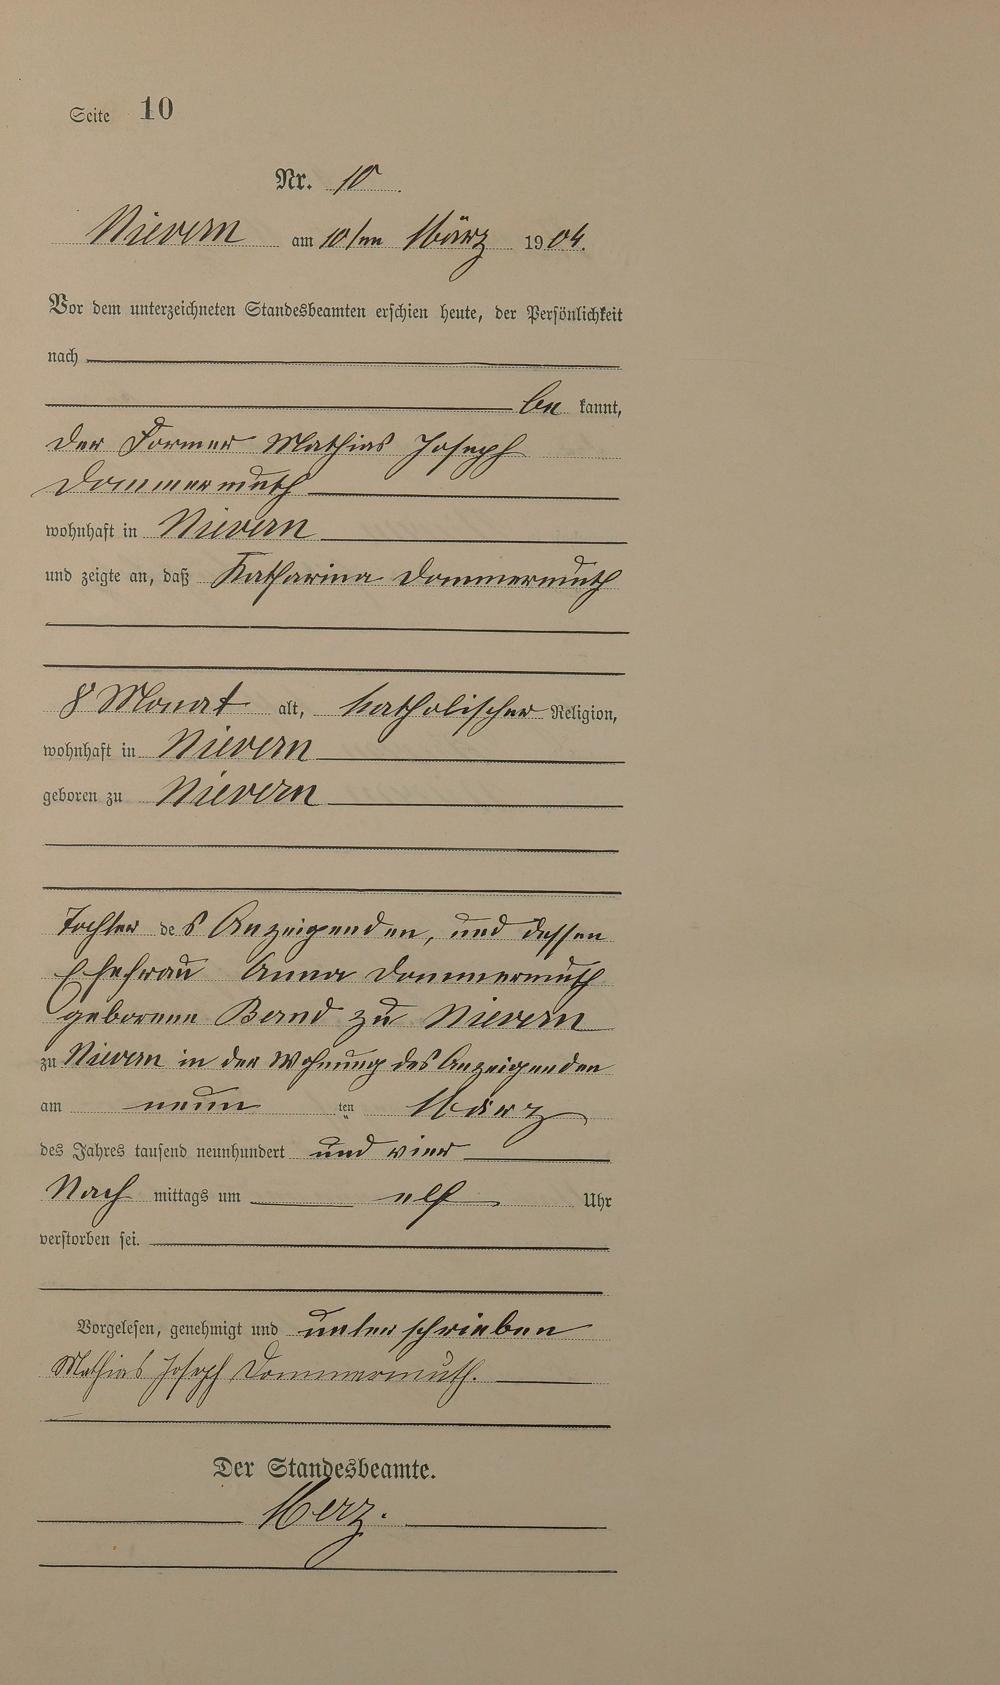 Seite 10
Nr. 10.
Nievern am 10ten März 1904.
Vor dem unterzeichneten Standesbeamten erschien heute, der Persönlichkeit
nach
be kannt,
der Former Mathias Joseph
Dommermuth
wohnhaft in Nievern
und zeigte an, daß Katharina Dommermuth
8 Monat alt, katholischer Religion,
wohnhaft in Nievern
geboren zu Nievern
Tochter des Anzeigenden, und dessen
Ehefrau Anna Dommermuth
geborene Bernd zu Nievern
zu Nievern in der Wohnung des Anzeigenden
am neun ten März
des Jahres tausend neunhundert und vier
Nach mittags um elf Uhr
verstorben sei.
Vorgelesen, genehmigt und unterschrieben
Mathias Joseph Dommermuth.
Der Standesbeamte.
Merz.